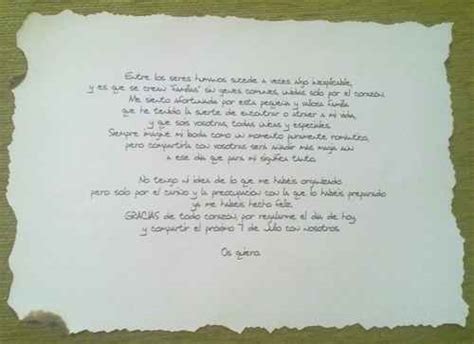 Entre los seres humanos sucede a veces algo inexplicable,
y es que se crean "familias" sin genes comunes, unidas solo por el corazón.
Me siento afortunada por esta pequeña y valiosa familia
que he tenido la suerte de encontrar o atraer a mi vida,
y que sois vosotras, todas únicas y especiales.
Siempre imaginé mi boda como un momento puramente romántico,
pero compartirla con vosotras será añadir más magia aún
a ese día que para mí significa tanto.
No tengo ni idea de lo que me habéis organizado
pero solo por el cariño y la preocupación con la que lo habéis preparado
ya me habéis hecho feliz.
GRACIAS de todo corazón, por regalarme el día de hoy
y compartir el próximo 7 de Julio con nosotros.
Os quiero.